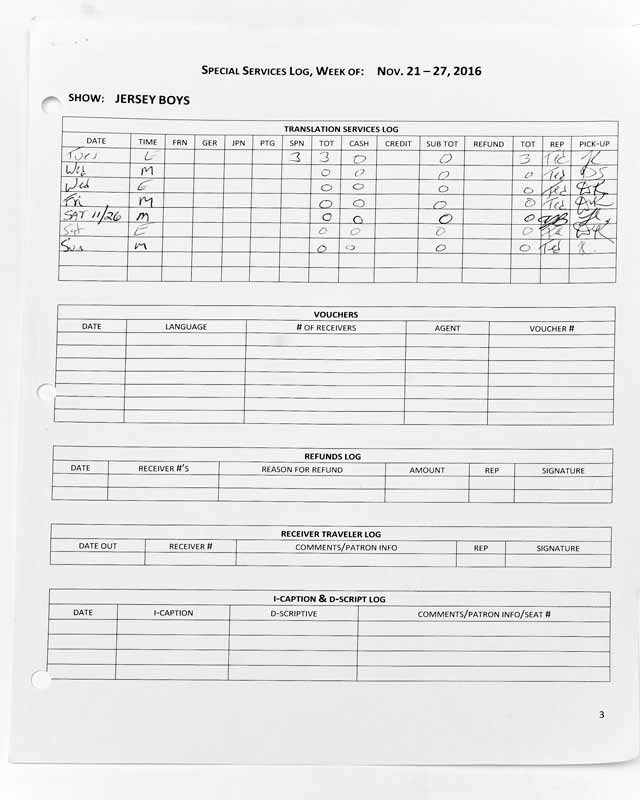 SPECIAL SERVICES LOG, WEEK OF: NOV. 21 – 27, 2016
SHOW: JERSEY BOYS
TRANSLATION SERVICES LOG
DATE TIME FRN GER JPN PTG SPN TOT CASH CREDIT SUB TOT REFUND TOT REP PICK-UP
Tues E 3 3 0 0 3 Ted
Wed M 0 0 0 0 Ted DS
Wed E 0 0 0 0 Ted DK
Fri M 0 0 0 0 Ted DK
SAT 11/26 M 0 0 0 0
Sat E 0 0 0 0 DK
Sun M 0 0 0 0 Ted
VOUCHERS
DATE LANGUAGE # OF RECEIVERS AGENT VOUCHER #
REFUNDS LOG
DATE RECEIVER #'S REASON FOR REFUND AMOUNT REP SIGNATURE
RECEIVER TRAVELER LOG
DATE OUT RECEIVER # COMMENTS/PATRON INFO REP SIGNATURE
I-CAPTION & D-SCRIPT LOG
DATE I-CAPTION D-SCRIPTIVE COMMENTS/PATRON INFO/SEAT #
3